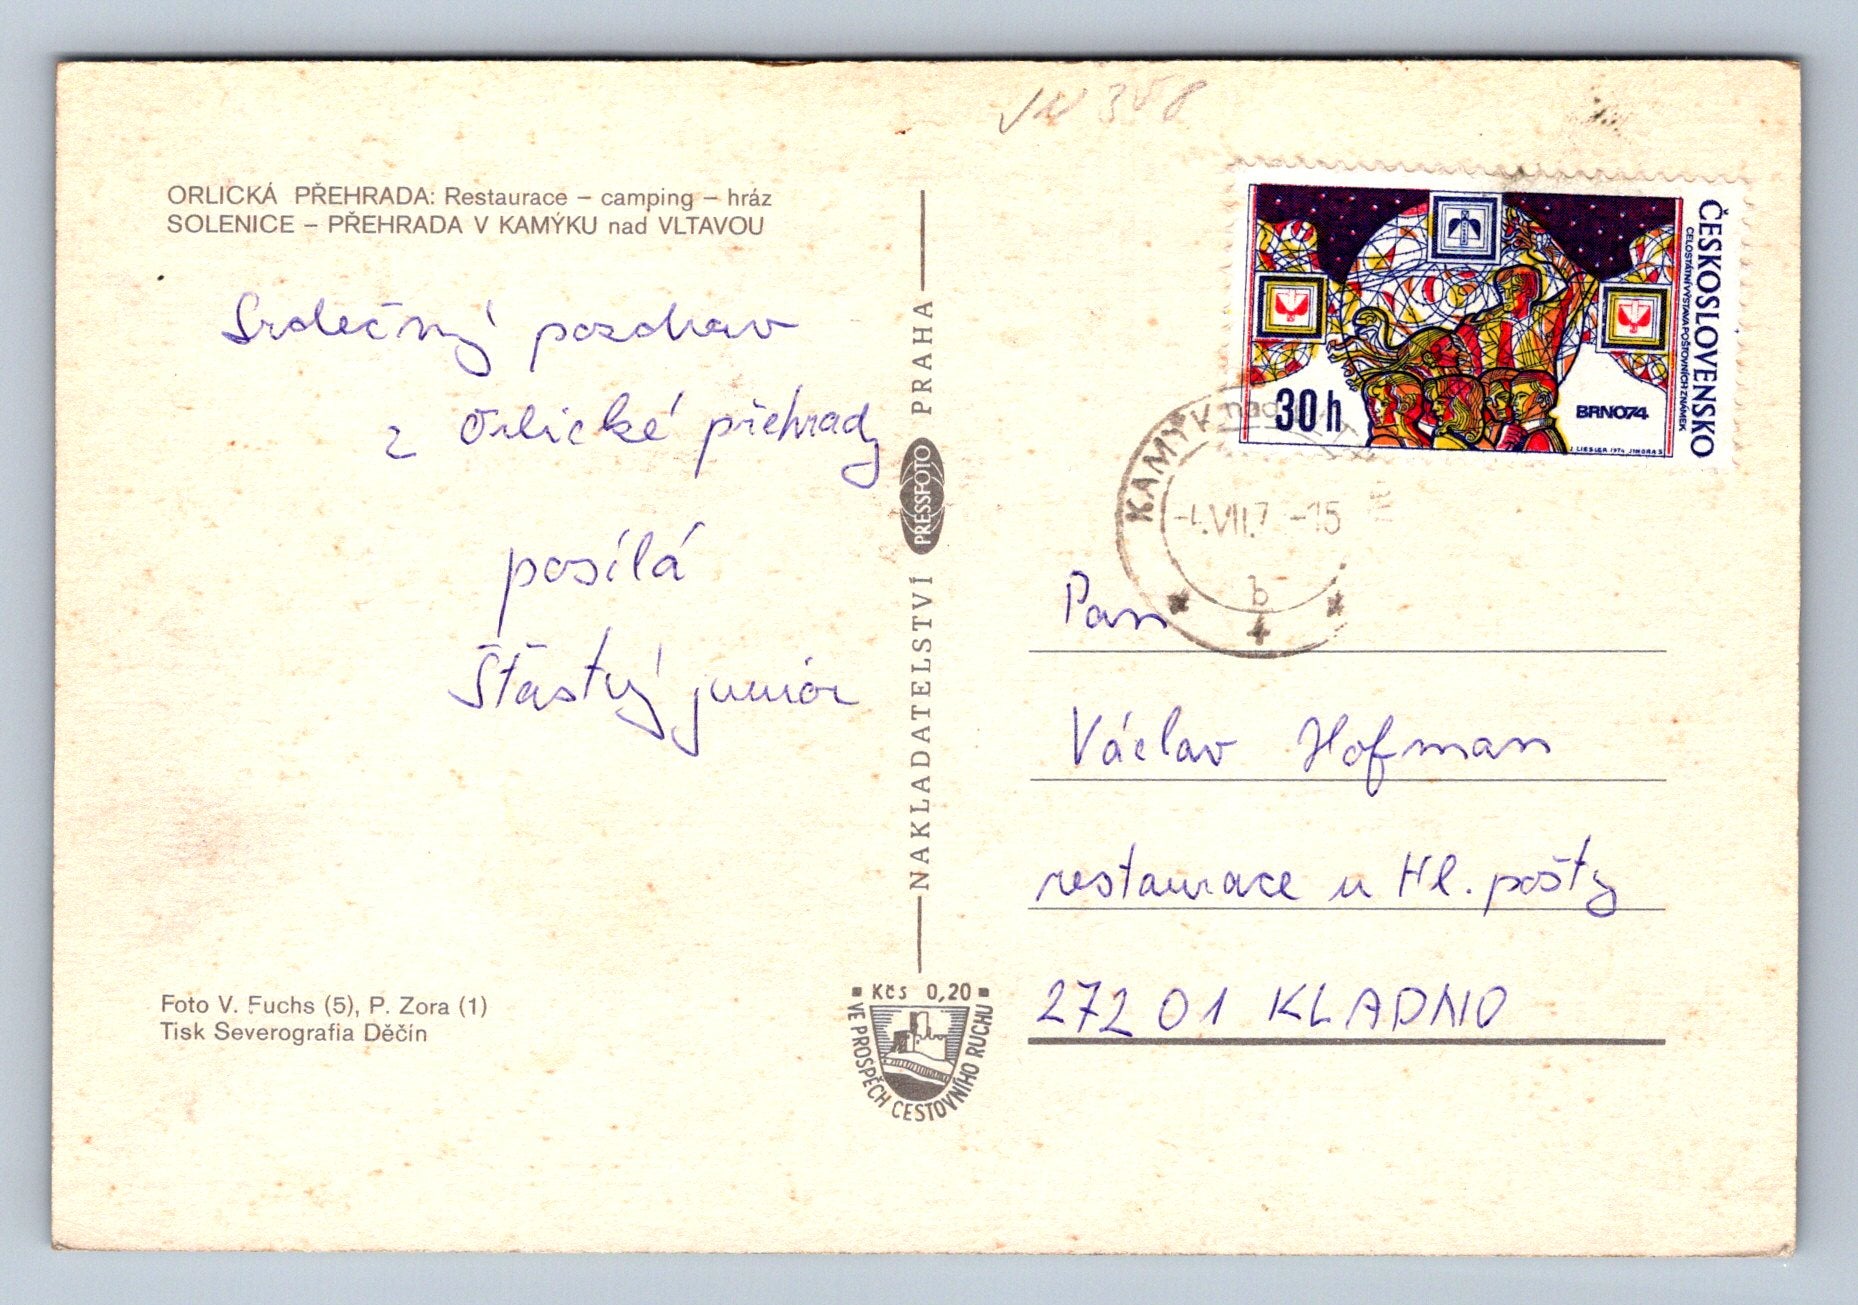 ORLICKÁ PŘEHRADA: Restaurace – camping – hráz
SOLENICE – PŘEHRADA V KAMÝKU nad VLTAVOU
Srdečný pozdrav
z Orlické přehrady
posílá
Šťastný junior
Foto V. Fuchs (5), P. Zora (1)
Tisk Severografia Děčín
NAKLADATELSTVÍ PRESSFOTO PRAHA
Kčs 0,20
VE PROSPĚCH CESTOVNÍHO RUCHU
ČESKOSLOVENSKO
CELOSTÁTNÍ VÝSTAVA POŠTOVNÍCH ZNÁMEK
30h
BRNO74
J. LIESLER 1974 JINDRA S.
KAMÝK nad
-4.VII.7 -15
b
Pan
Václav Hofman
restaurace u Hl. pošty
272 01 KLADNO